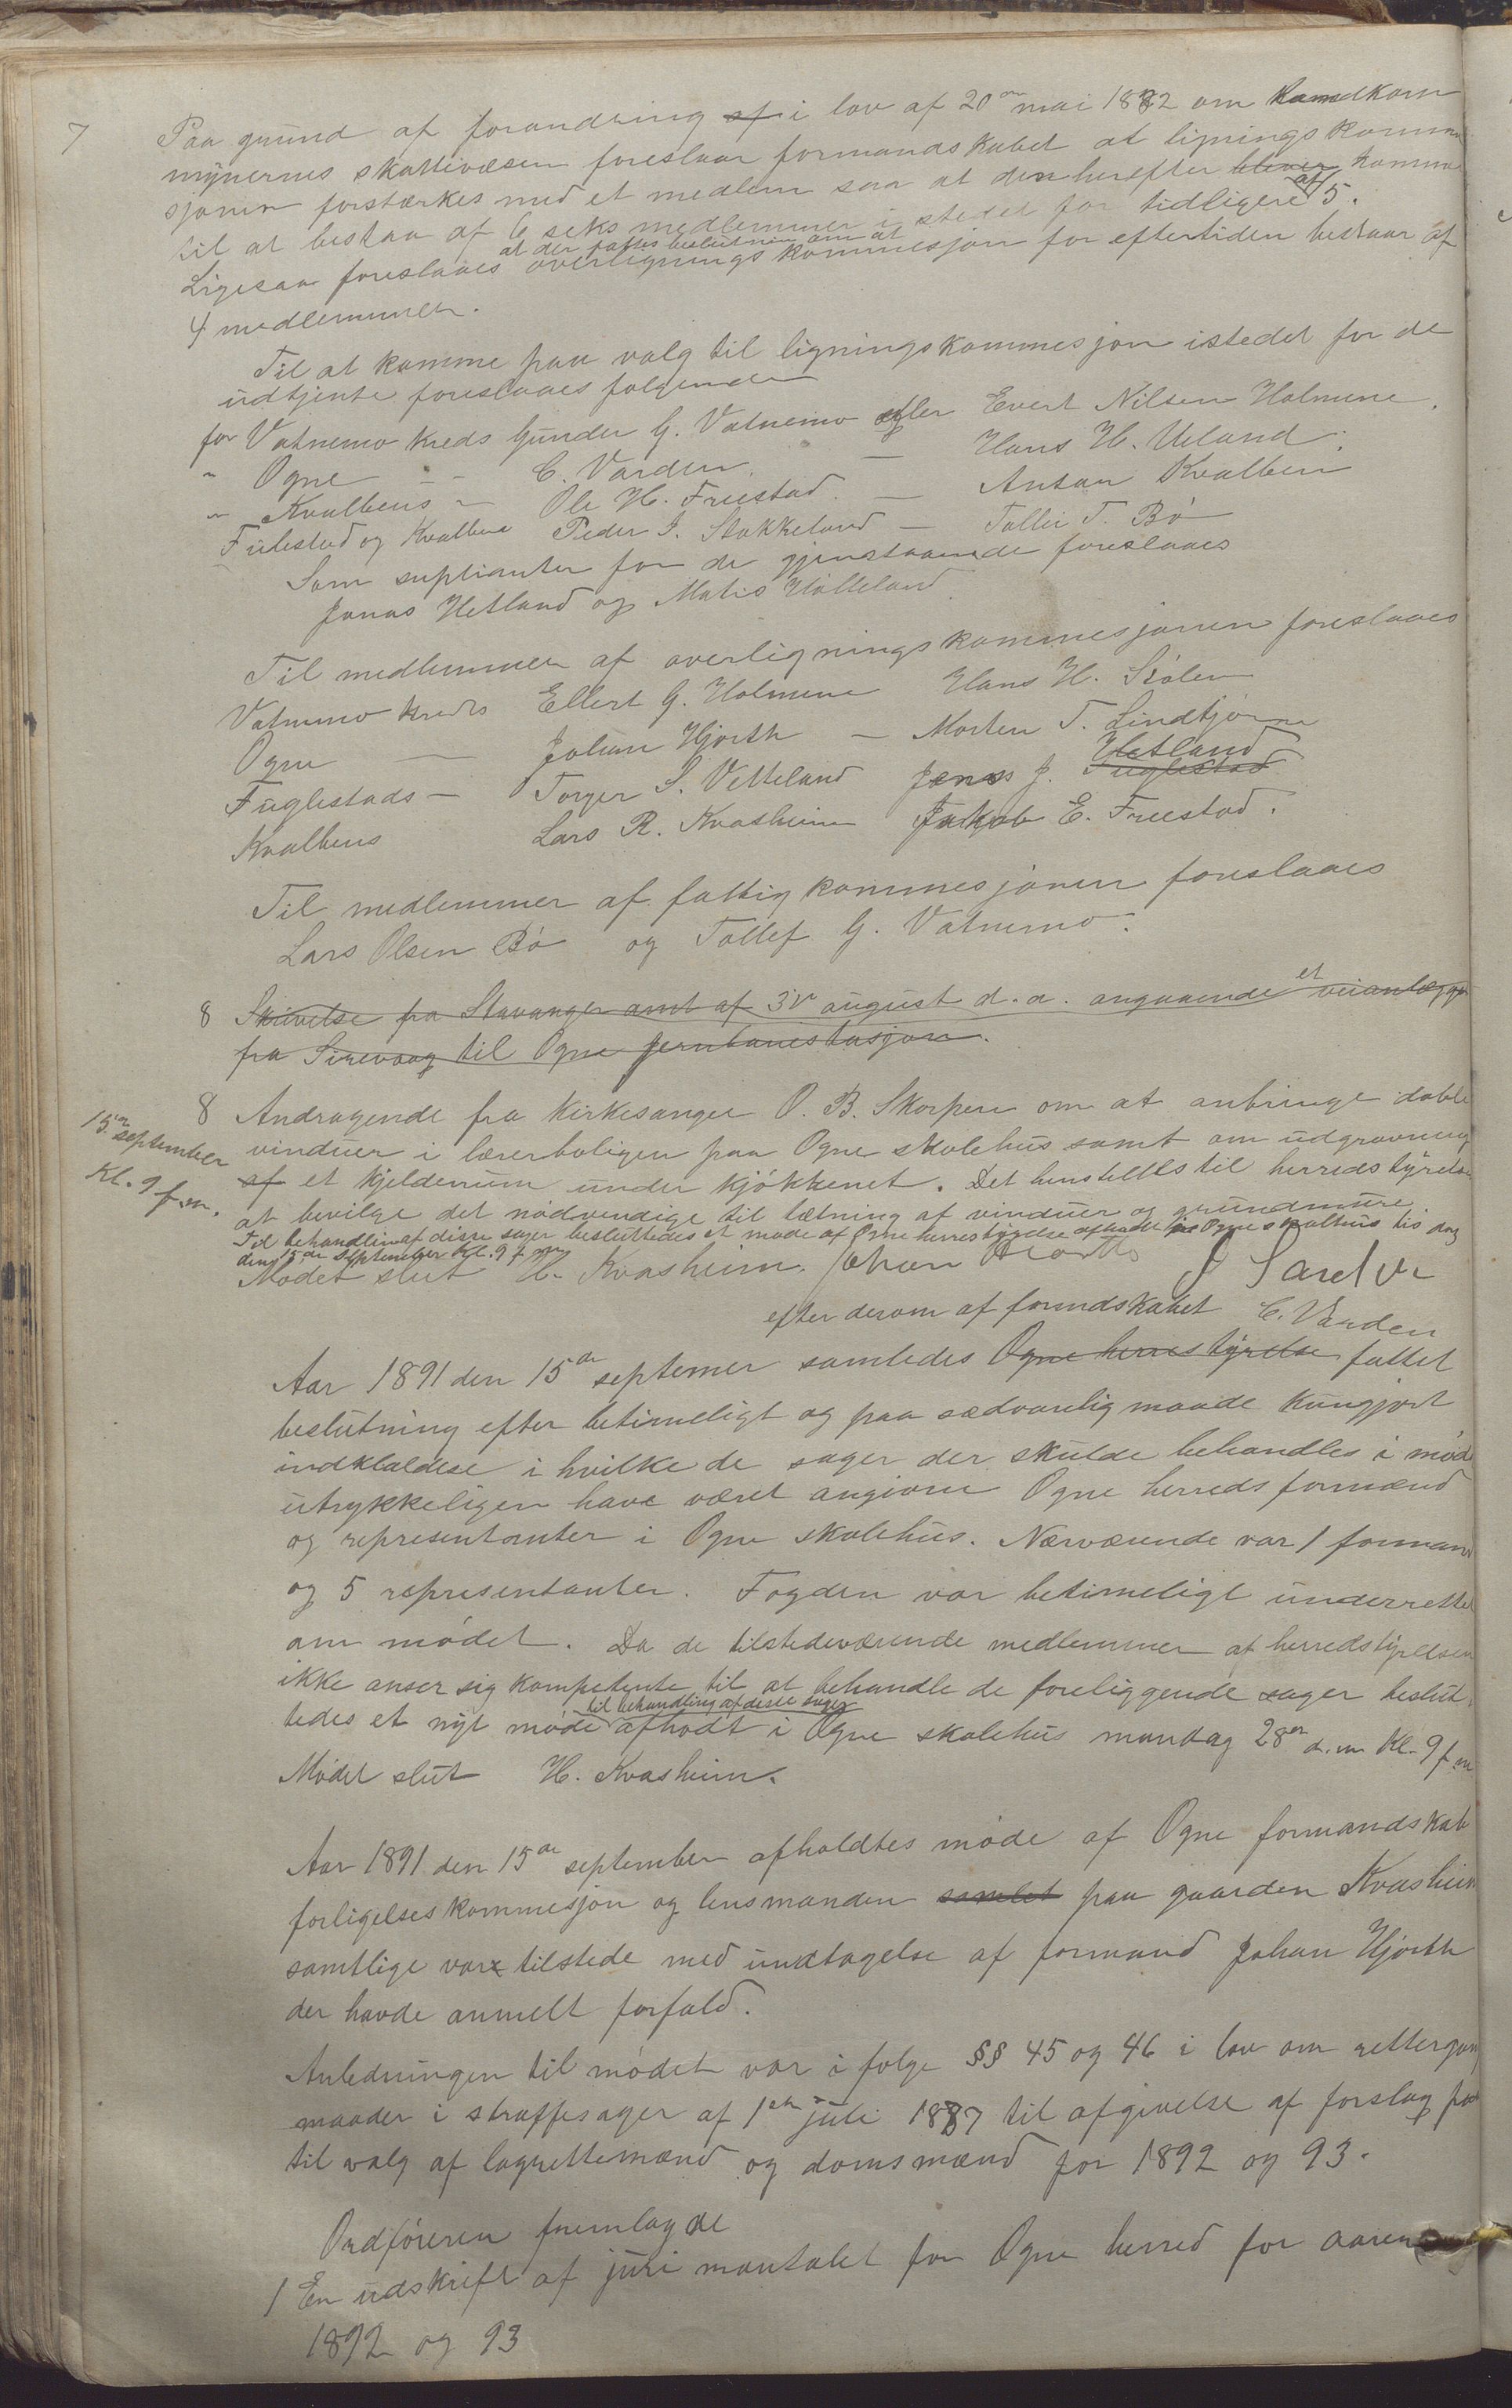 7 Paa grund af forandring af i lov af 20de mai 1882 om Landkom
mynernes skattevæsen foreslaar formandskabet at ligningskomme
sjonen forstærkes med et medlem saa at den herefter bliver komme
til at bestaa af 6 seks medlemmer i stedet for tidligere af 5.
Ligesaa foreslaaes at der fattes beslutning om at overlignings kommesjon for eftertiden bestaar af
4 medlemmer.
Til at komme paa valg til ligningskommesjon istedet for de
udtjente foreslaaes følgende
for Vatnemo Kreds Gunder G. Vatnemo eller Evert Nilsen Holmene.
" Ogne - - C. Varden. — Hans H. Ueland.
" Kvalbens - Ole H. Freestad. — Antan Kvalbein
Fuglestad og Kvalbens Peder J. Stokkeland — Tollei T. Bø
Som suplianter for de gjenstaaende foreslaaes
Jonas Hetland og Matis Hølleland
Til medlemmer af overligningskommesjonen foreslaaes
Vatnemo kreds Ellert G. Holmene Hans H. Stølen
Ogne — Johan Hjorth — Morten T. Lindtjørn
Fuglestads — Torger S. Vetteland Jonas J. Fuglestad Hetland
Kvalbens Lars R. Kvasheim Jakob E. Freestad.
Til medlemmer af fattigkommesjonen foreslaaes
Lars Olsen Bø og Tollef G. Vatnemo.
8 Skrivelse fra Stavanger amt af 3v august d.a. angaaende et veianlægge
fra Sirevaag til Ogne jernbanestasjon.
8 Andragende fra Kirkesanger O. B. Skorpen om at anbringe doble
15de september
Kl. 9 f.m.
vinduer i lærerboligen paa Ogne skolehus samt om udgravning
af et kjelderrum under kjøkkenet. Det henstilles til herredstyrelse
at bevilge det nødvendige til tætning af vinduer og grundmure
Til behandling af disse sager besluttedes et møde af Ogne herrestyrelse afholdt Ogne skolehus tisdag
den 15de september Kl. 9 f.m.
Mødet slut H. Kvasheim. Johan Hjorth
C. Varden
efter derom af formdskabet
Aar 1891 den 15de septemer samledes Ogne herrestyrelse fattet
beslutning efter betimeligt og paa sædvanlig maade kungjort
indklaldese i hvilke de sager der skulde behandles i møde
utrykkeligen have været angivne Ogne herredsformænd
og representanter i Ogne skolehus. Nærværende var 1 formand
og 5 representanter. Fogden var betimeligt underrettet
om mødet. Da de tilstedeværende medlemmer af herredstyrelsen
ikke anser sig kompetente til at behandle de foreliggende sager beslut
tedes et nyt møde til behandling af disse sager afhodt i Ogne skolehus mandag 28de d.m Kl. 9 f.m
Mødet slut H. Kvasheim.
Aar 1891 den 15de september afholdtes møde af Ogne formandskab
forligelseskommesjon og lensmanden samlet paa gaarden Kvasheim
samtlige var tilstede med undtagelse af formand Johan Hjorth
der havde anmelt forfald.
Anledningen til mødet var i følge §§ 45 og 46 i lov om rettergang
maader i straffesager af 1ste juli 1887 til afgivelse af forslag paa
til valg af lagrettemænd og domsmænd for 1892 og 93.
Ordføreren fremlagde
1 En udskrift af juri mantalet for Ogne herred for aarene
1892 og 93